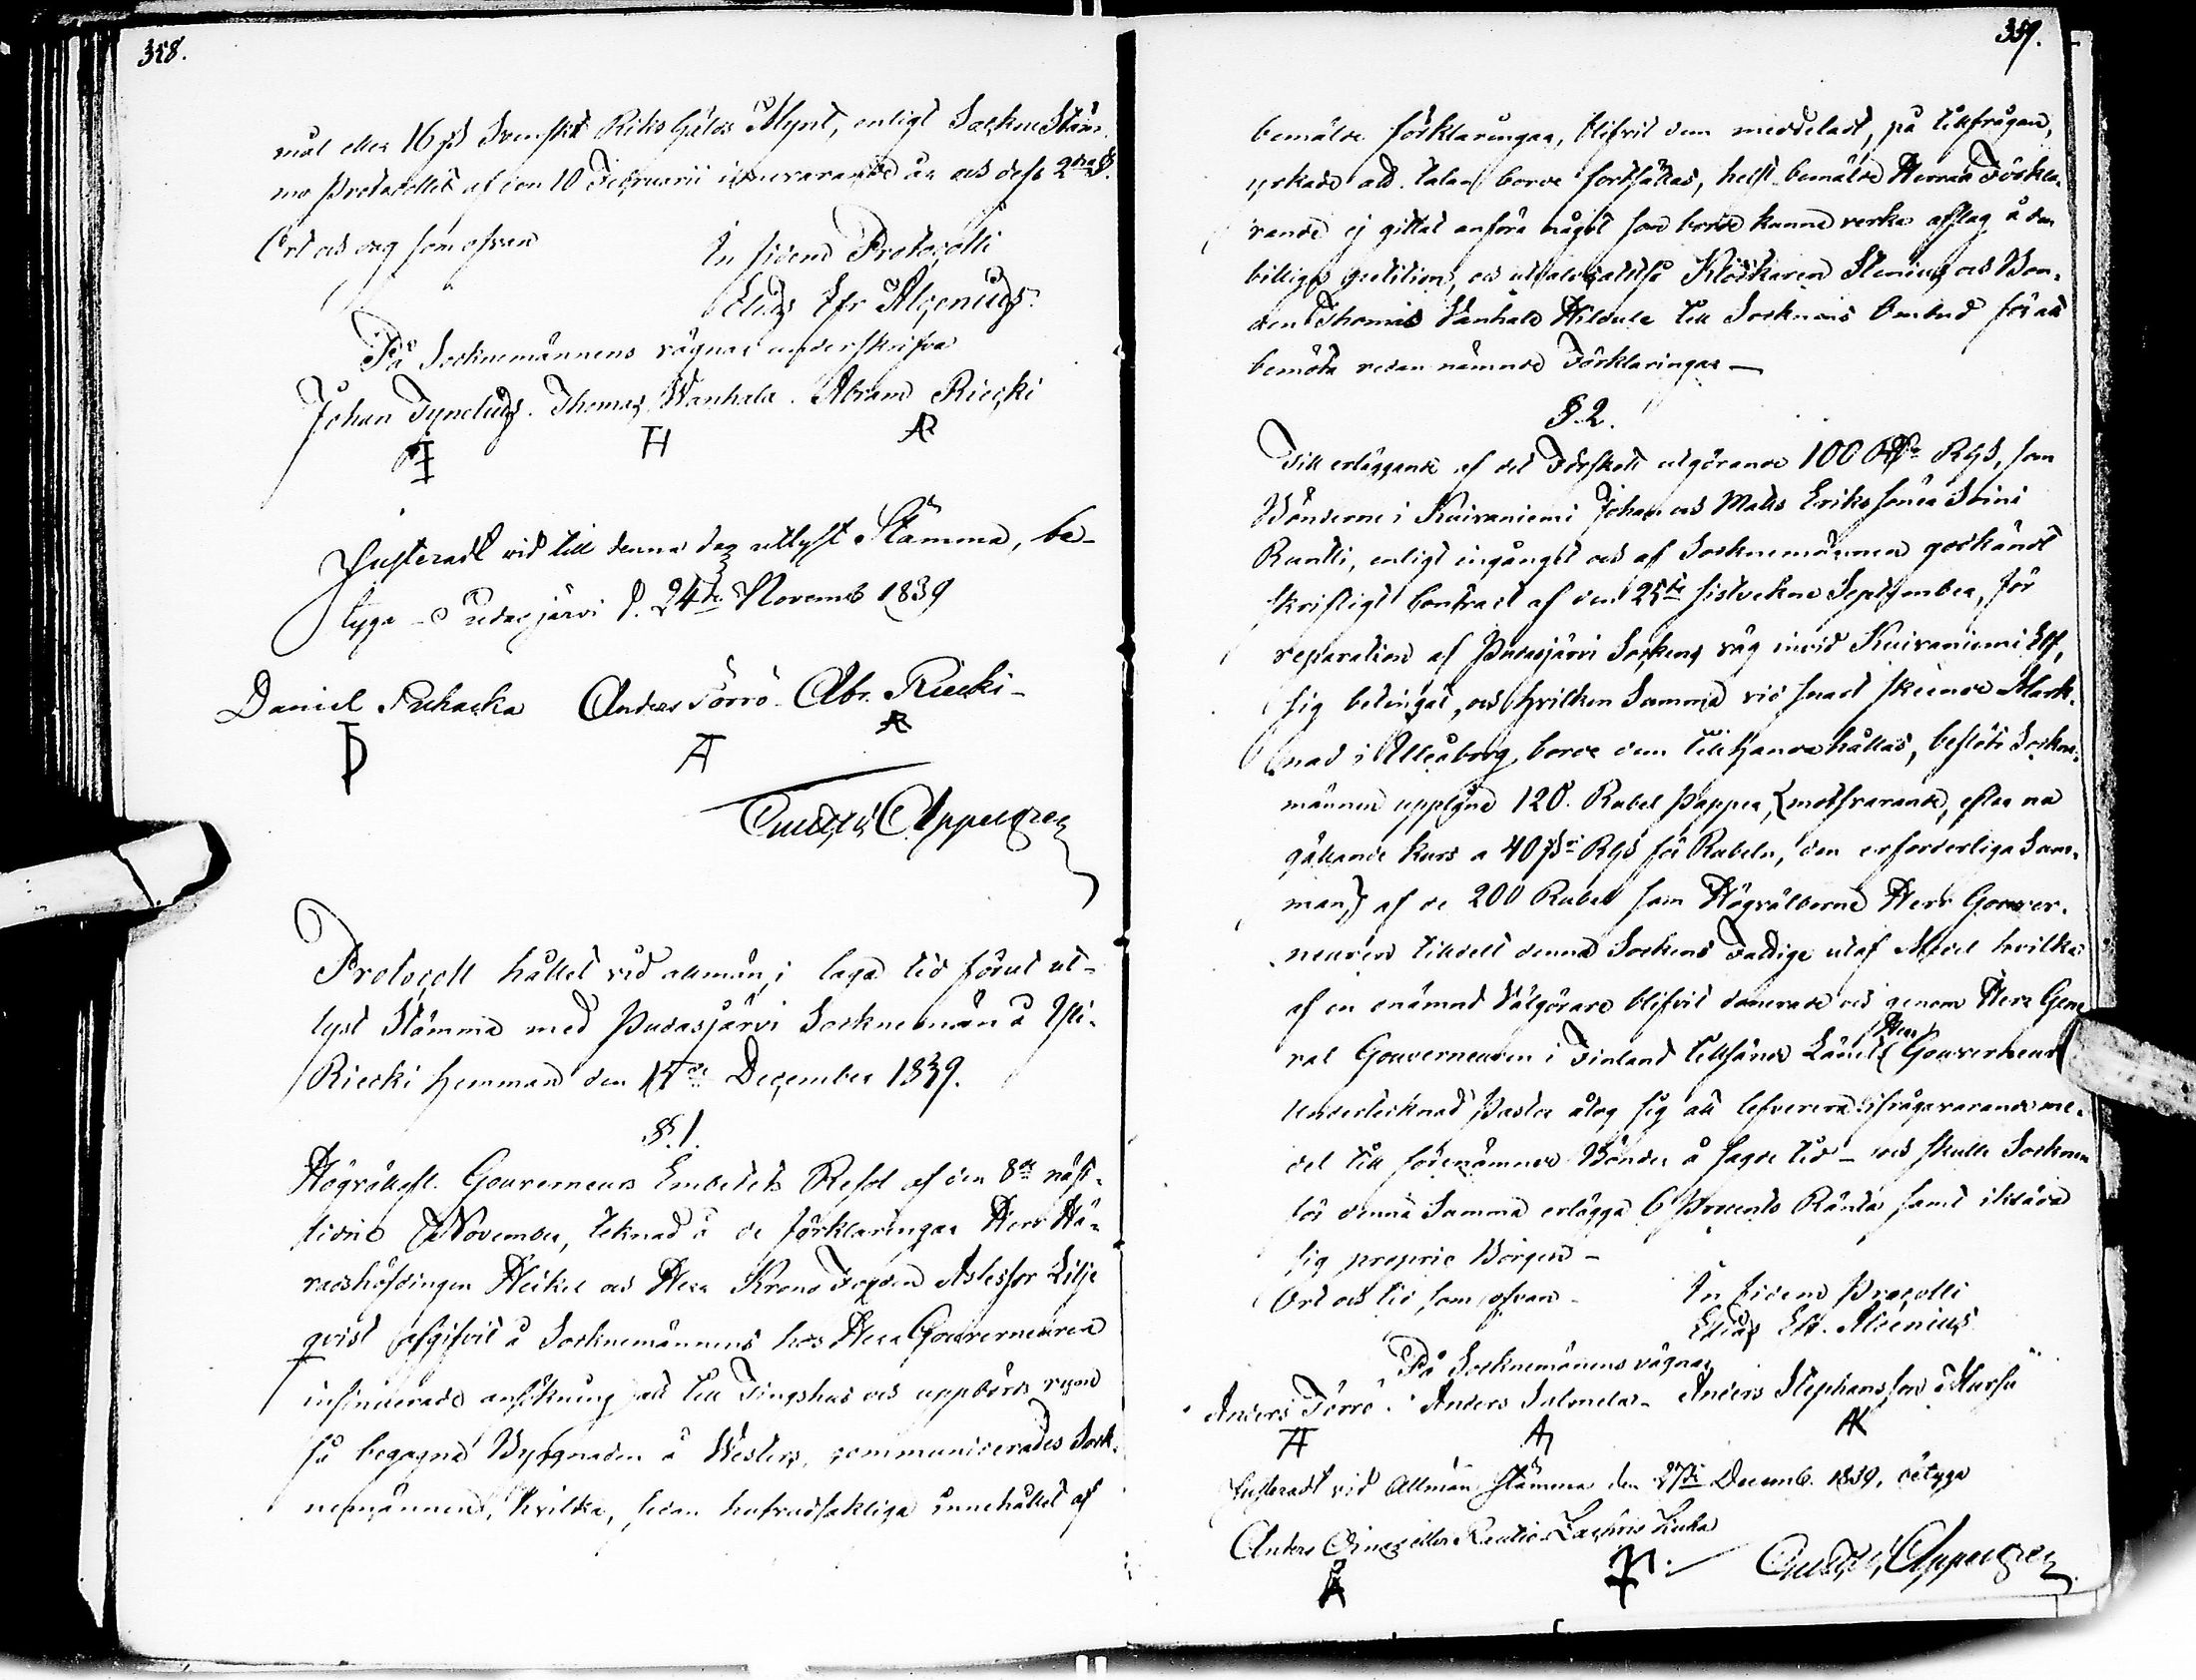 358.
mål eller 16 sk Svenskt Riks Gälds Mynt, enligt Sockne Stäm-
mo Protocollet af den 10 Februarii innevarande år och dess 2dra §.
Ort och dag som ofvan
In fidem Protocolli
Elias Efr Alcenius
På Socknemännens vägnar underskrifva
Johan Tynelius. Thomas Wanhala. Abram Riecki
Justeradt vid till denna dag utlyst Stämma, be-
tyga - Pudasjärvi d. 24de Novemb 1839
Daniel Puhacka Anders Törrö Abr. Riecki -
Appelgren
Protocoll hållet vid allmän, i laga tid förut ut-
lyst Stämma med Pudasjärvi Socknemän å Yli-
Riecki hemman den December 1839.
§. 1.
Högvällofl. Gouverneurs Embetets Resol af den 8de näst-
lidne November, teknad å de förklaringar Herr Hä-
radshöfdingen Heikel och Herr Krono Fogden Assessor Lilje
qvist afgifvit å Socknemännens hos Herr Gouverneuren
insinuerade ansökning att till Tingshus och uppbörds rum
få begagna Byggnaden å Westers, communicerades Sock-
nemännen, hvilka, sedan hufvudsakliga innehållet af
359.
bemälde förklaringar, blifvit dem meddeladt, på tillfrågan,
yrkade att talan borde fortsättas, helst bemälde Herrar Förkla-
rande ej gittat anföra något som borde kunna verka afslag å den
billiga petition, och utvaldes altså Klockaren Stenius och Bon-
den Thomas Vanhala Hildula till Socknens Ombud för att
bemöta redan nämnde Förklaringar —
§. 2.
Till erläggande af det Förskott utgörande 100 Rgs, som
Bönderne i Kuivaniemi Johan och Matts Eriks söner
Runtti, enligt ingånget och af Socknemännen godkändt
skriftligt Contract af den 25te sistvekne September, för
reparation af Pudasjärvi Sockens väg invid Kuivaniemi Elf,
sig betingat, och hvilken Summa vid snart skeende Mark-
nad i Uleåborg borde dem tillhandahållas, beslöto Sockne-
männen upplåna 120. Rubel Papper, (motsvarande, efter nu
gällande kurs a 40 sk Rgs för Rubeln, den erforderliga Sum-
man,) af de 200 Rubel som Högvälborne Herr Gouver-
neuren tilldelt denna Sockens Fattige utaf Medel hvilka
af en onämnd Välgörare blifvit donerade och genom Herr Gene
ral Gouverneuren i Finland tillsände Länets Herr Gouverneur
Undertecknad Pastor åtog sig att lefverera ifrågavarande me-
del till förenämnde Bönder å sagde tid - och skulle Socknen
för denna Summa erlägga 6 Procents Ränta samt ikläda
sig proprie Borgen -
Ort och tid som ofvan -
In fidem Procolli
Elias Efr. Alcenius
På Socknemännens vägnar
Anders Törrö. Anders Stephansson
Justeradt vid Allmän Stämma den 27de Decemb. 1839, betyga
Anders eller Rautio
Appelgren